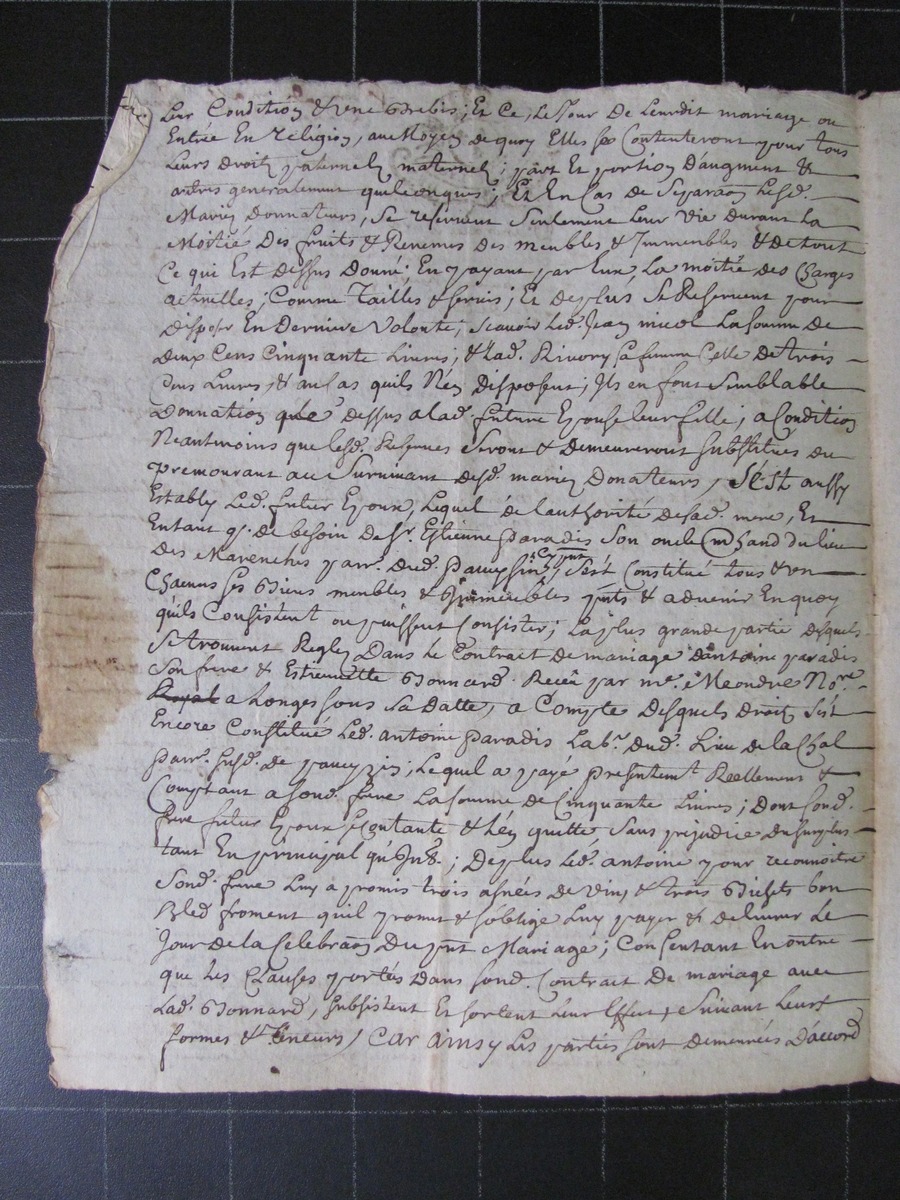 Leur Condition & une Brebis; Et Ce, Le Jour De Leurdit mariage ou
Entrée En religion, au Moyen de quoy Elles se Contenteront pour tous
Leurs droits paternels, maternels; part Et portion D'augment &
autres generalement quelconques; Et En Cas de Separaon Lesd.
Mariez Donnateurs, Se reservent Seulement Leur vie Durant La
Moitié Des fruits & Revenus Des meubles & Immeubles & de tout
Ce qui Est Dessus Donné; En payant par Eux, La moitié des Charges
actuelles; Comme Tailles & servis; Et De plus Se Reservent pour
Disposer En Derniere Volonté, Scavoir Led. Jean nicol La somme De
Deux Cens Cinquante Livres, & Lad. Rivory sa femme Celle De trois
Cens Livres, & au Cas quils N'en Disposent; Ils en font Semblable
Donnation que Dessus a lad. future Epouse leur fille, a Condition
Neantmoins que lesd. Reserves Seront & Demeureront substitués du
premourant au Survivant desd. mariez Donateurs, S'est aussy
Estably Led. futur Epoux, Lequel de l'authorité de sad. mere, Et
Entant q. De besoin De Sr. Estienne paradis Son oncle Mchand du lieu
Des Marenches parr. Dud. paveyzin cy pnt, S'est Constitué tous & un
Chacuns Ses Biens meubles & Immeubles pnts & advenir En quoy
quils Consistent ou puissent Consister; La plus grande partie desquels
Se trouvent Reglez Dans le Contrat de mariage d'antoine paradis
Son frere & Estiennette Bonnard Receu par me. Meondre Nore.
Royal a Longes sous Sa Datte, a Compte Desquels Droits S'est
Encore Constitué Led. antoine paradis Labr. dud. Lieu de la Chal
parr. susd. de paveyzin; Lequel a payé presentemt. Reellement &
Comptant a sond. frere La somme de Cinquante Livres; Dont sond.
frere futur Epoux se Contante & L'en quitte Sans prejudice du surplus
tant En principal qu'Jnts.; De plus Led. antoine pour reconnoitre
Sond. frere Luy a promis trois asnées de vin, & trois Bichets bon
Bled froment quil promet & s'oblige Luy payer & delivrer Le
Jour de la Celebraon Du pnt Mariage; Consentant En outre
que Les Clauses portés Dans sond. Contrat De mariage avec
Lad. Bonnard, subsistent Et sortent Leur Effect, Suivant Leurs
formes & teneurs, Car ainsy Les parties sont demeurées D'accord